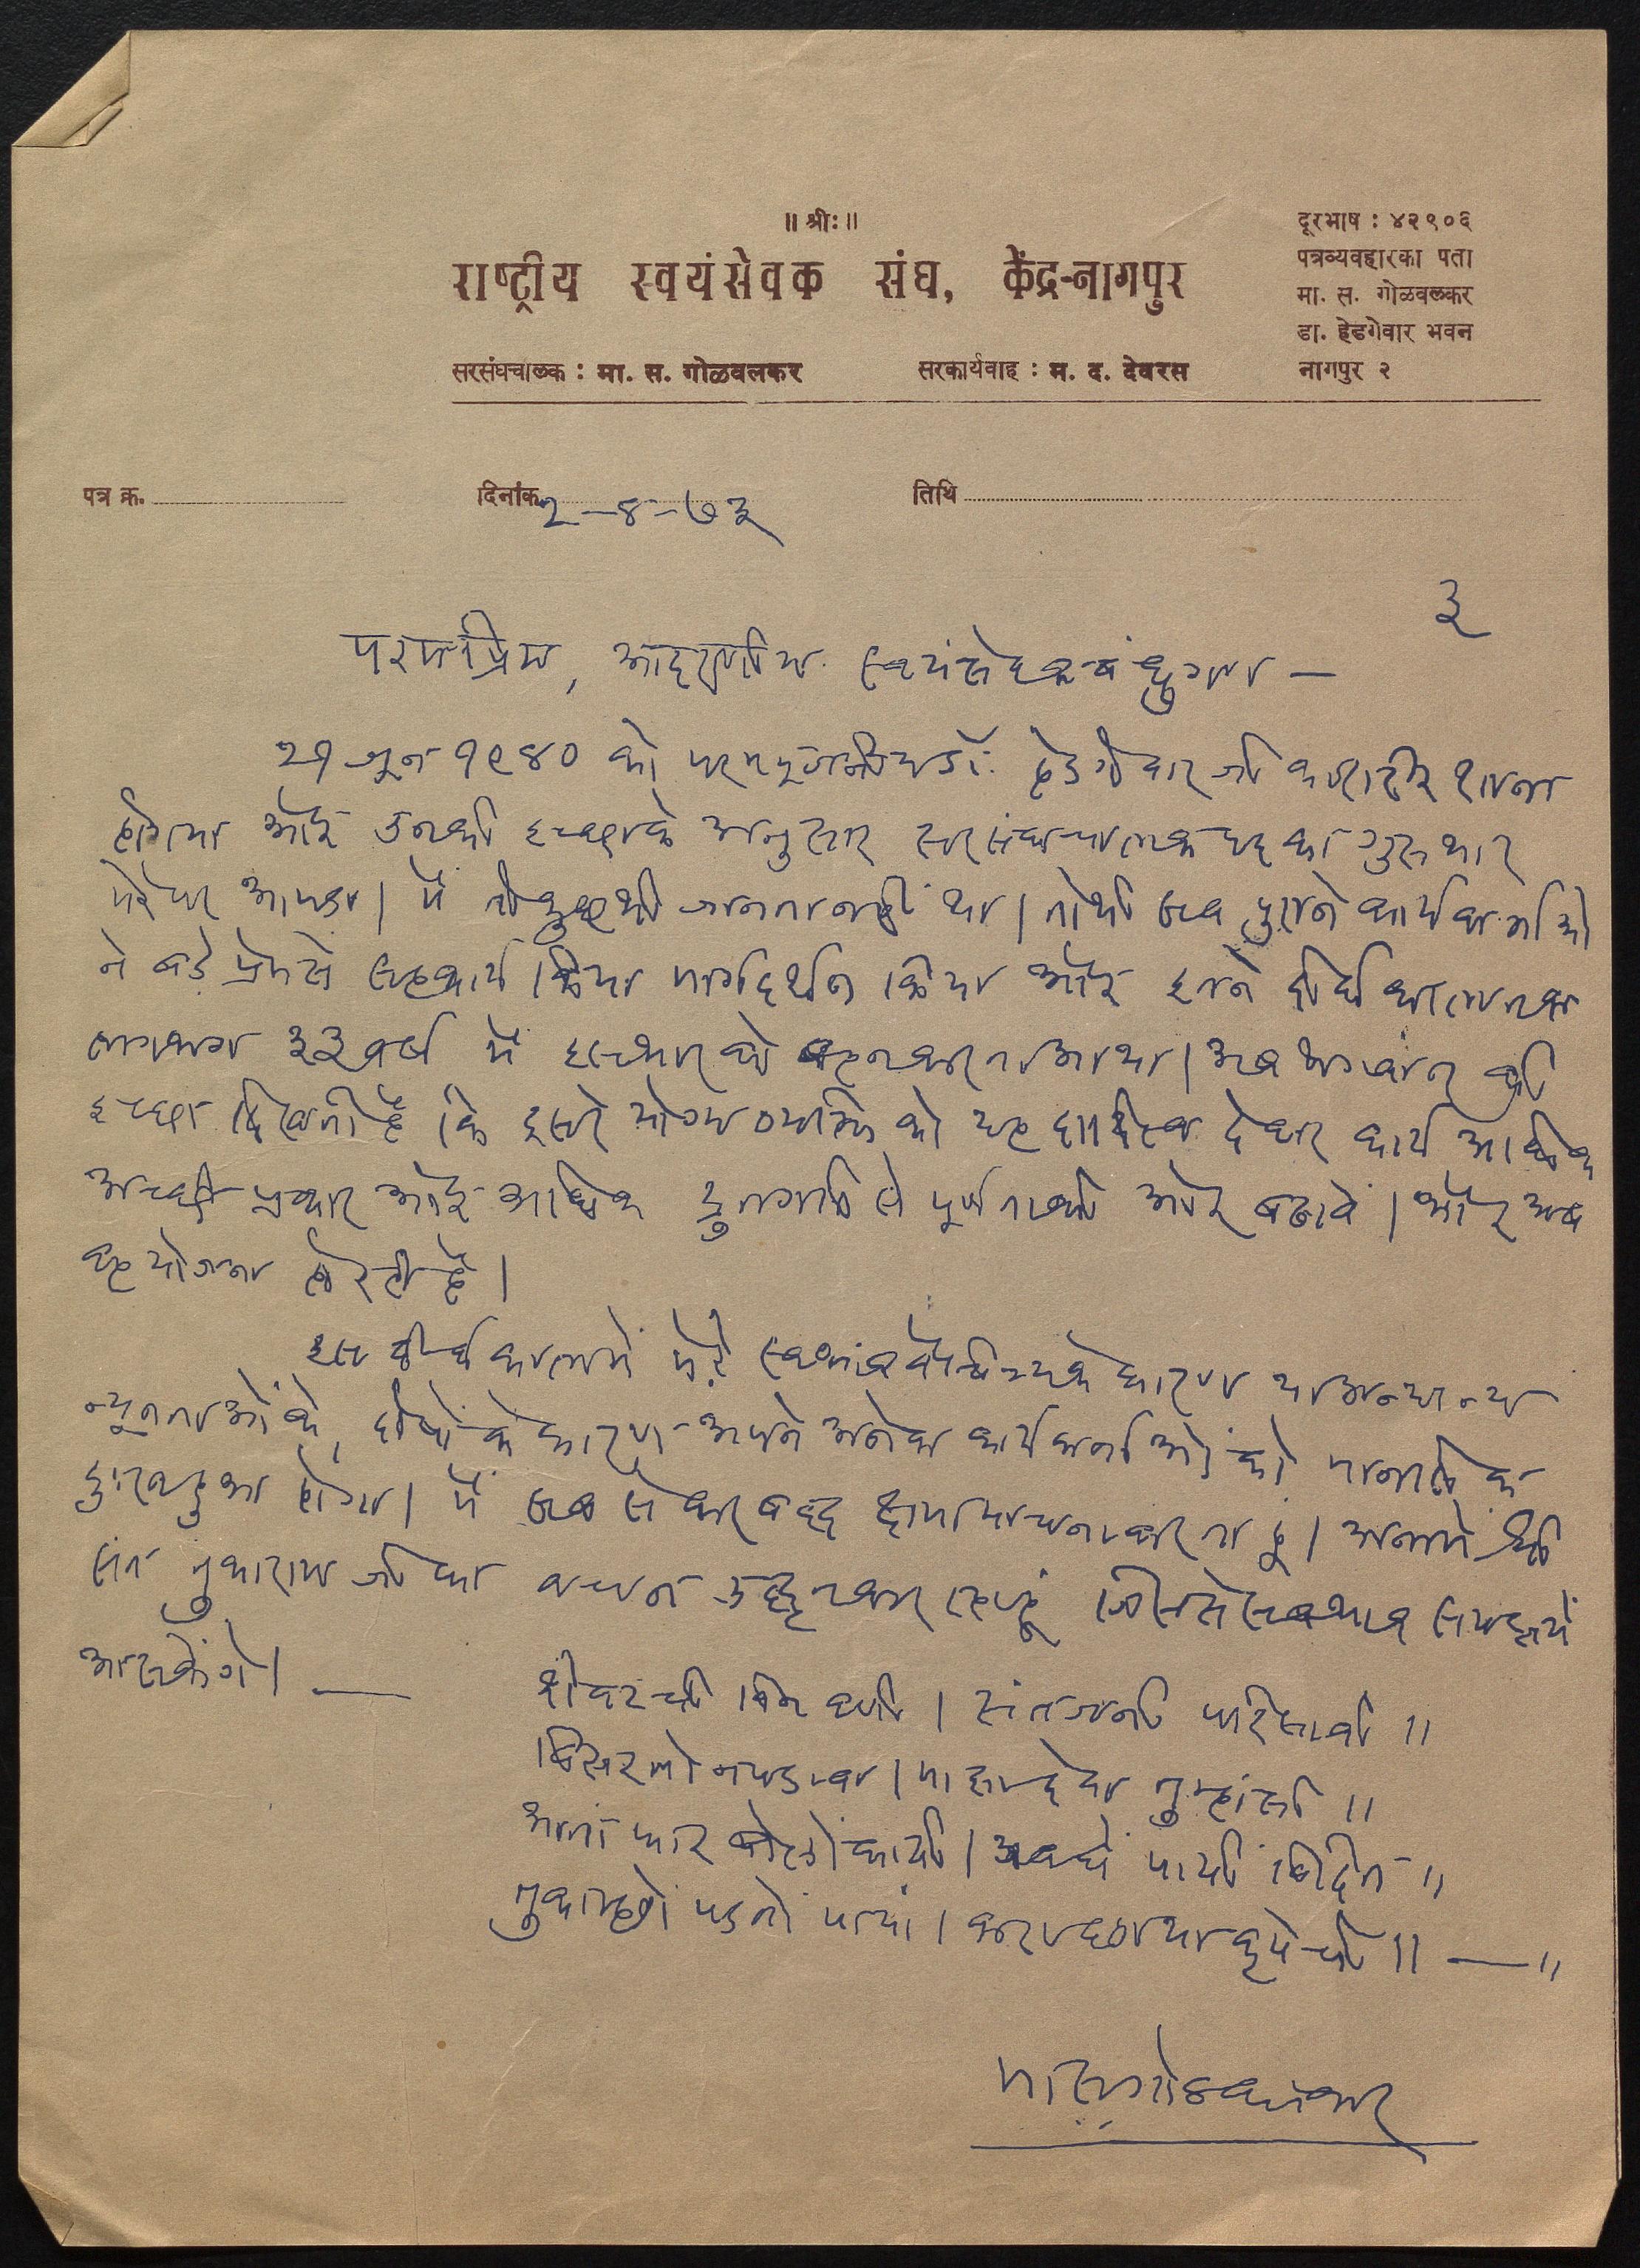 ॥ श्रीः॥
राष्ट्रीय स्वयंसेवक संघ, केंद्र-नागपुर
सरसंघचालक : मा. स. गोळवलकर सरकार्यवाह : म. द. देवरस
दूरभाष : ४२९०६
पत्रव्यवहारका पता
मा. स. गोळवलकर
डा. हेडगेवार भवन
नागपुर २
पत्र क्र. दिनांक २-४-७३ तिथि
३
परमप्रिय, आदरणीय स्वयंसेवक बंधुगण —
२१ जून १९४० को परमपूजनीय डॉ. हेडगेवार जी का शरीर शान्त
होगया और उनकी इच्छाके अनुसार सरसंघचालक पद का गुरुभार
मेरेपर आपडा। मैं तो कुछभी जानता नहीं था। तोभी सब पुराने कार्यकर्ताओं
ने बडे प्रेमसे सहकार्य किया मार्गदर्शन किया और इतने दीर्घ कालतक
लगभग ३३ वर्ष मैं इस भार को वहन करता आया। अब भगवान् की
इच्छा दिखती है कि दूसरे योग्य व्यक्ति को यह दायित्व देकर कार्य अधिक
अच्छी प्रकार और अधिक द्रुतगति से पूर्णताकी ओर बढावें। और अब
वह योजना हो रही है।
इस दीर्घ कालमें मेरे स्वभाव वैचित्र्यके कारण या अन्यान्य
न्यूनताओंके, दोषोंके कारण अपने अनेक कार्यकर्ताओं को मानसिक
दुःख हुआ होगा। मैं सब से करबद्ध क्षमायाचना करता हूं। अन्तमें श्री
संत तुकाराम जी का वचन उद्धृत कर रहा हूं जिससे सब भाव समझमें
आसकेंगे। —
शेवटची विनवणी। संतजनी परिसावी॥
विसर तो न पडावा। माझा देवा तुम्हांसी॥
आता फार बोलों कायी। अवघें पायीं विदित॥
तुका म्हणे पडतों पायां। करा छाया कृपेची॥ — ॥
मा. स. गोळवलकर